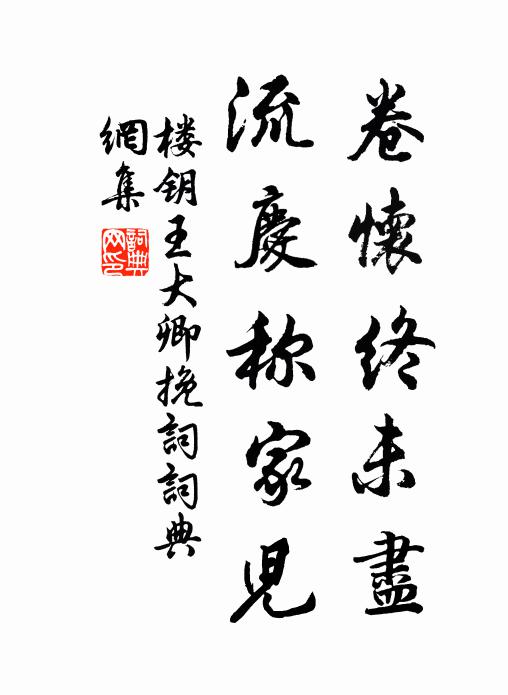 卷懷終未盡
流慶称家児
楼钥王大卿挽詞詞典
網集
詞典网印